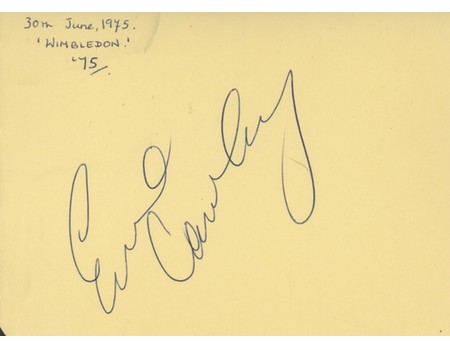 30th June, 1975.
'WIMBLEDON.'
'75
Cawley